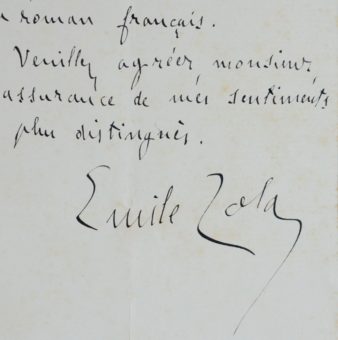 roman français.
Veuillez agréer monsieur,
assurance de mes sentiments
plus distingués.
Emile Zola